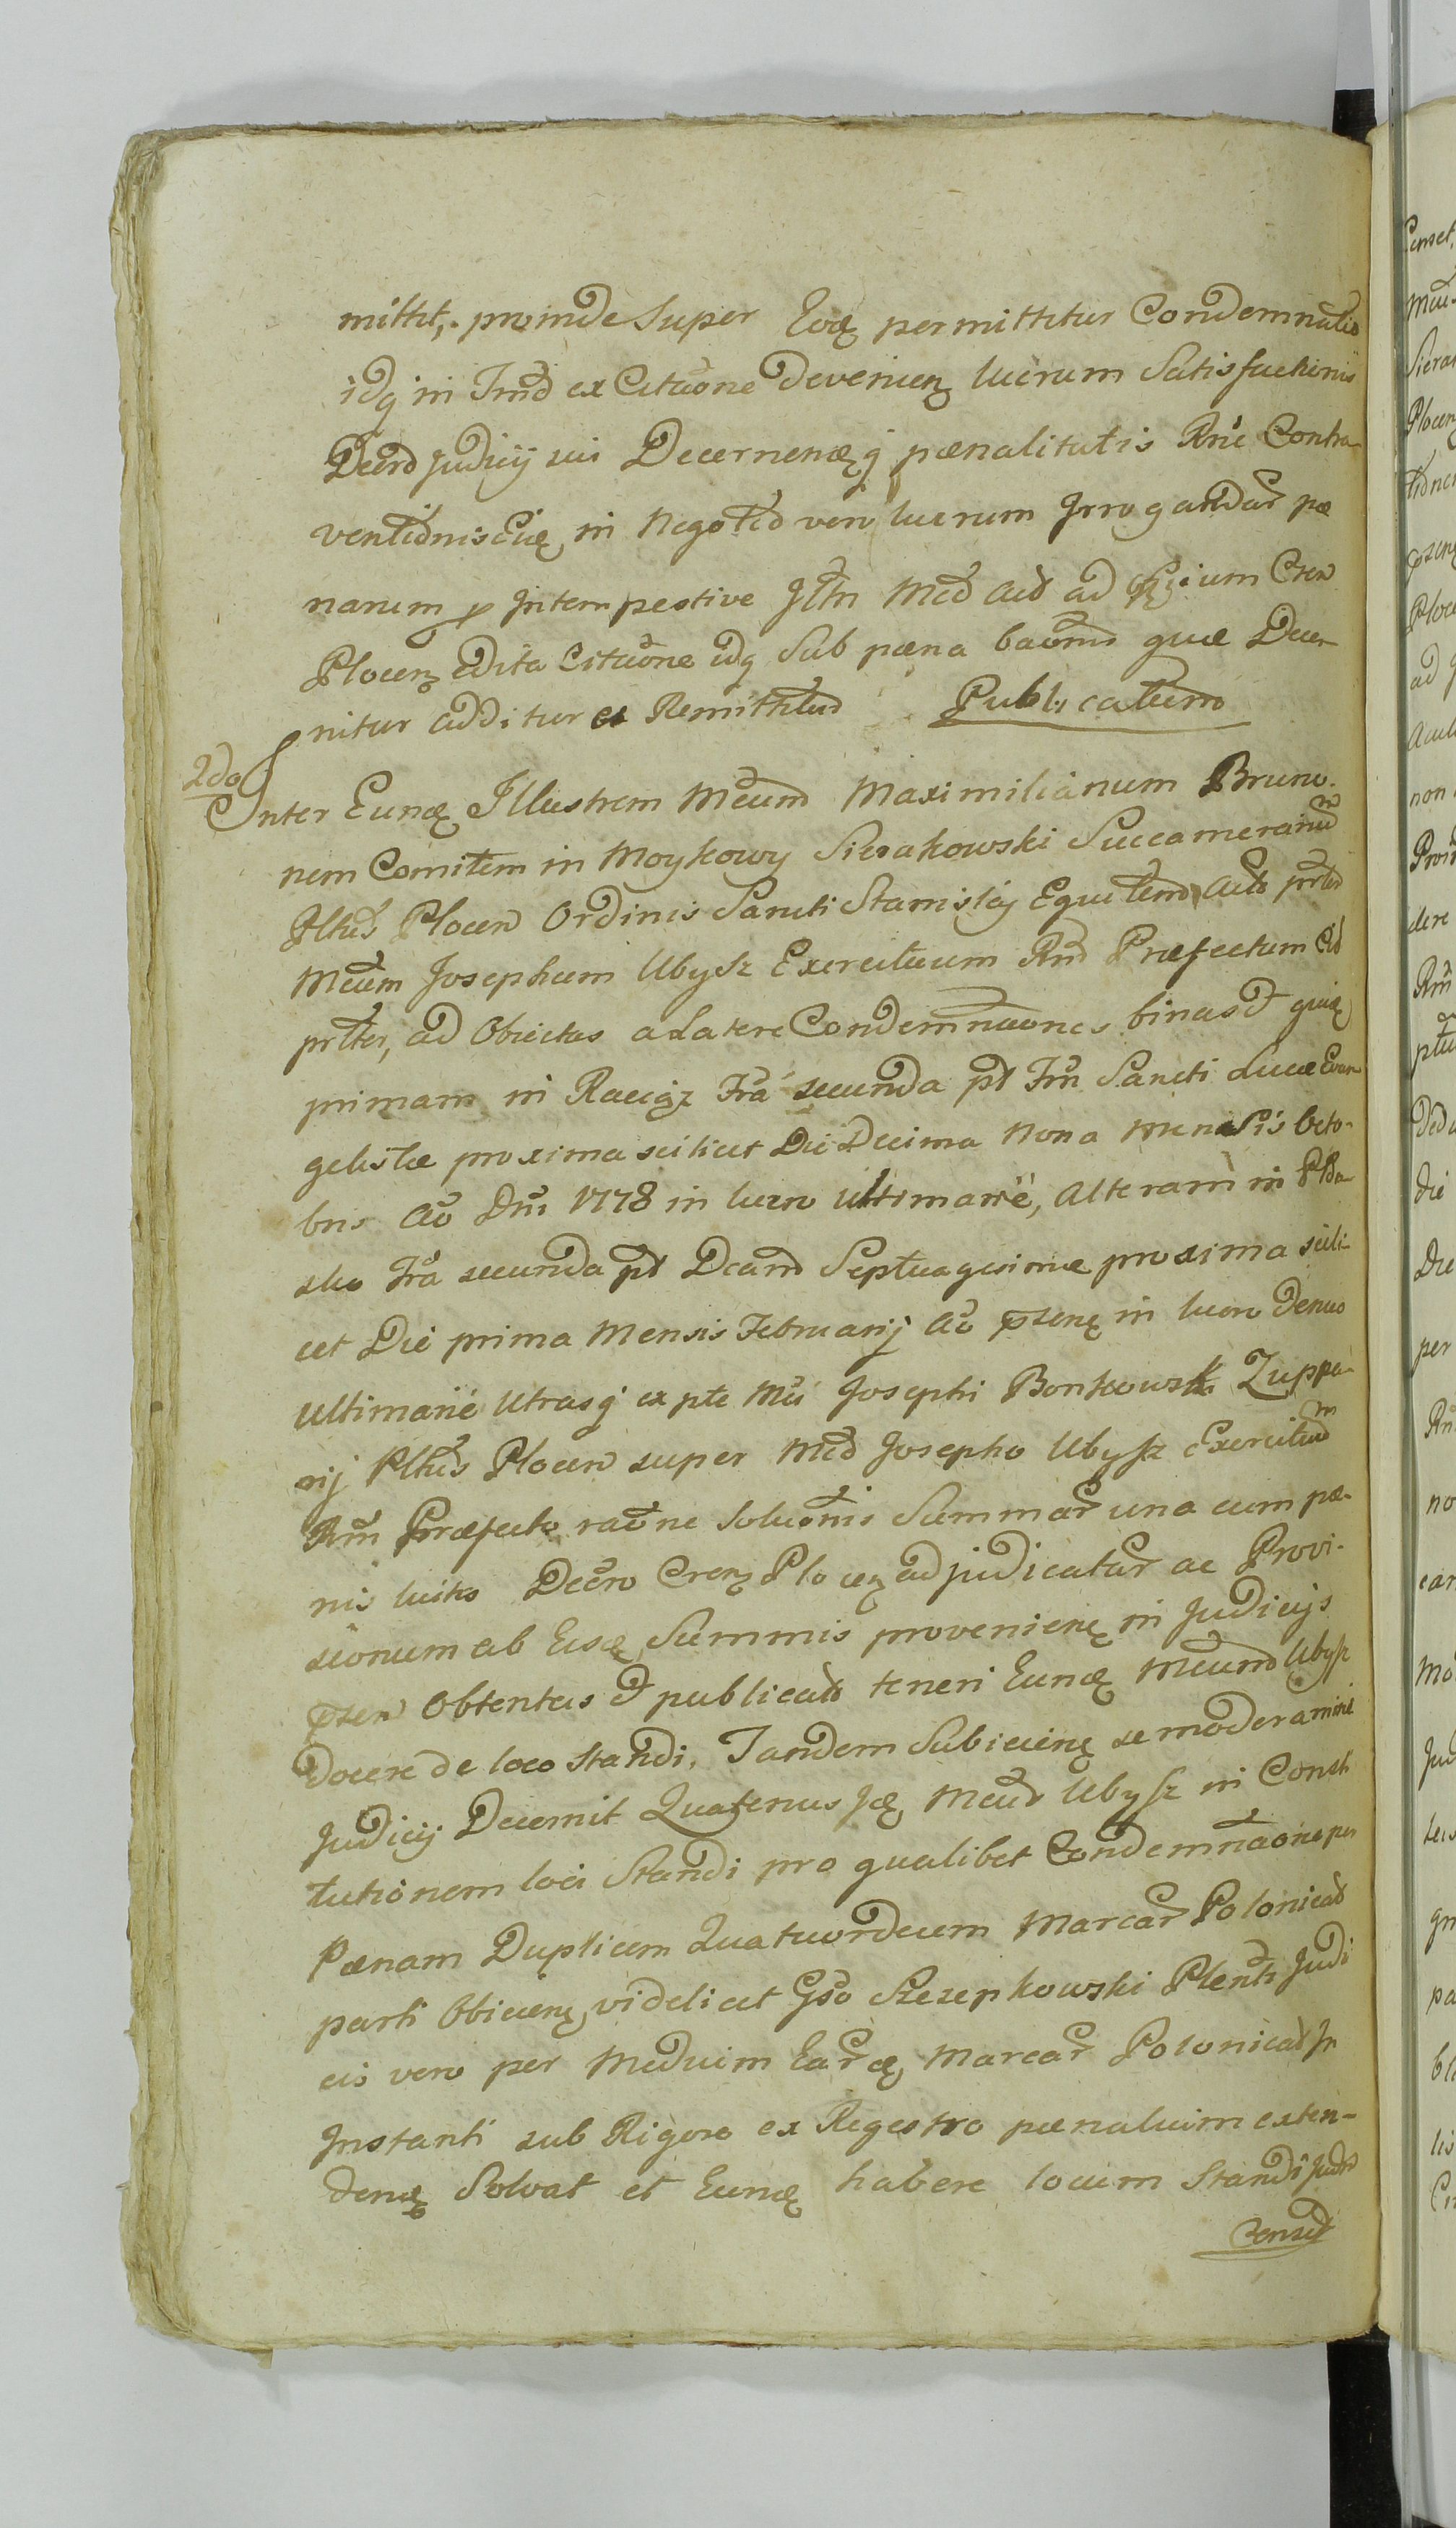 mittit, proinde Super Eodę permittitur Condemnatio
idq in Tmd ex Citãone Devenienę lucrum Satisfactionis
Decrõ Judicij sui Decernendęq pænalitatis Rne Contra-
ventionis Eidę in Negotio vero lucrum Irrogandar pæ
narum p Intempestive Mcd Actõ ad Crem
Plocenę edita Citãone idq Sub pæna baonis quæ Decer-
nitur additur et Remittitur Publicatum
2do
Inter Eundę Illustrem Mcum Maximilianum Bruno-
nem Comitem in Moykowy Sierakowski Succamerarium
Pltus Plocen Ordinis Sancti Stanislaj Equitem Actõ
Mcum Josephum Ubysz Exercituum Rni Præfectum Cit
prter, ad Obiectas a Latere Condemnãones binas et quidę
primam in Raciąz Fria secunda pt Fm Sancti Lucæ Evan
gelistæ proxima scilicet Die Decima Nona Mensis Octo-
bris Ao Dni 1778 in lucro Ultimarie, Alteram in
sko Fria secunda pt Dcam Septuagesimæ proxima scili-
cet Die prima Mensis Februarij Ao pszenę in lucro Denuo
Ultimarie Utrasq ex pte Mci Josephi Bonkowski Zuppa-
rij Pltus Plocen super Mcd Josepho Ubysz Exercituum
Rni Præfecto raõne Solutionis Summar una cum pæ-
nis luitis Decro Crenę Plocenę adjudicatar ac Provi-
sionum ab Eisdę Summis provenienę in Judicijs
pszen Obtentas et publicatas teneri Eundę Mcum Ubysz
Docere de loco standi, Tandem Subiicienę se moderamini
Judicij Decernit Quatenus Idę Mcus Ubysz in Consti
tutionem loci Standi pro qualibet Condemnãone per
Pænam Duplicem Quatuordecem Marcar Polonical
parti Obiicienę videlicet Gso Szczepkowski Plenti Judi
cis vero per Medium Earundę Marcar Polonical In
Instanti sub Rigore ex Regestro pænalium exten-
dendę Solvat et Eundę habere locum Standi Judm
Censet